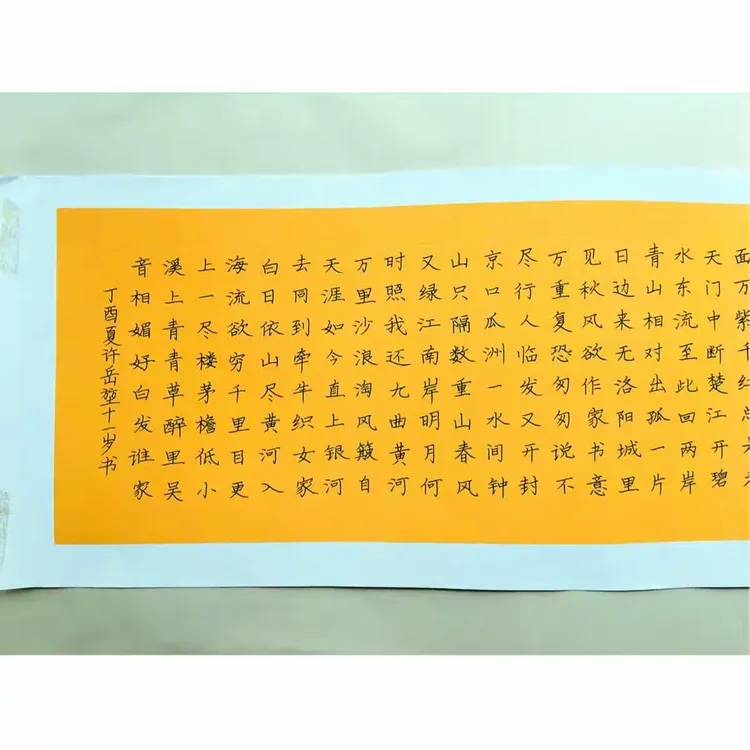 面万紫千红总
天门中断楚江开碧
水东流至此回两岸
青山相对出孤一片
日边来无洛阳城里
见秋风欲作家书意
万重复恐匆匆说不
尽行人临发又开封
京口瓜洲一水间钟
山只隔数重山春风
又绿江南岸明月何
时照我还九曲黄河
万里沙浪淘风簸自
天涯如今直上银河
去同到牵牛织女家
白日依山尽黄河入
海流欲穷千里目更
上一尽楼茅檐低小
溪上青青草醉里吴
音相媚好白发谁家
丁酉夏许岳堃十一岁书